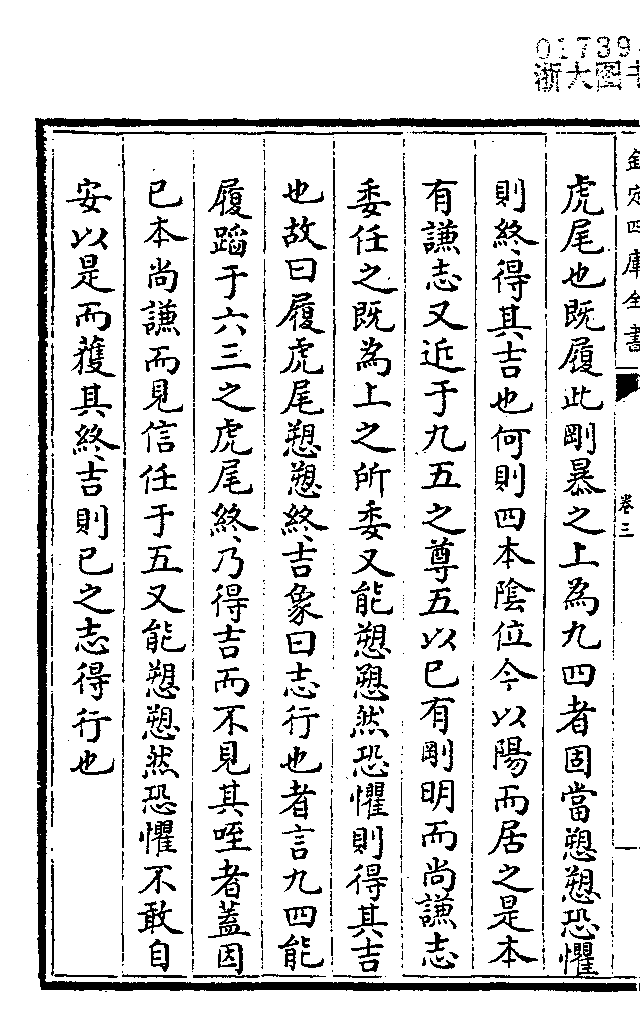 01739
浙大图书
欽定四庫全書
卷三
虎尾也既履此剛暴之上為九四者固當愬愬恐懼
則終得其吉也何則四本陰位今以陽而居之是本
有謙志又近于九五之尊五以已有剛明而尚謙志
委任之既為上之所委又能愬愬然恐懼則得其吉
也故曰履虎尾愬愬終吉象曰志行也者言九四能
履蹈于六三之虎尾終乃得吉而不見其咥者蓋因
已本尚謙而見信任于五又能愬愬然恐懼不敢自
安以是而獲其終吉則已之志得行也